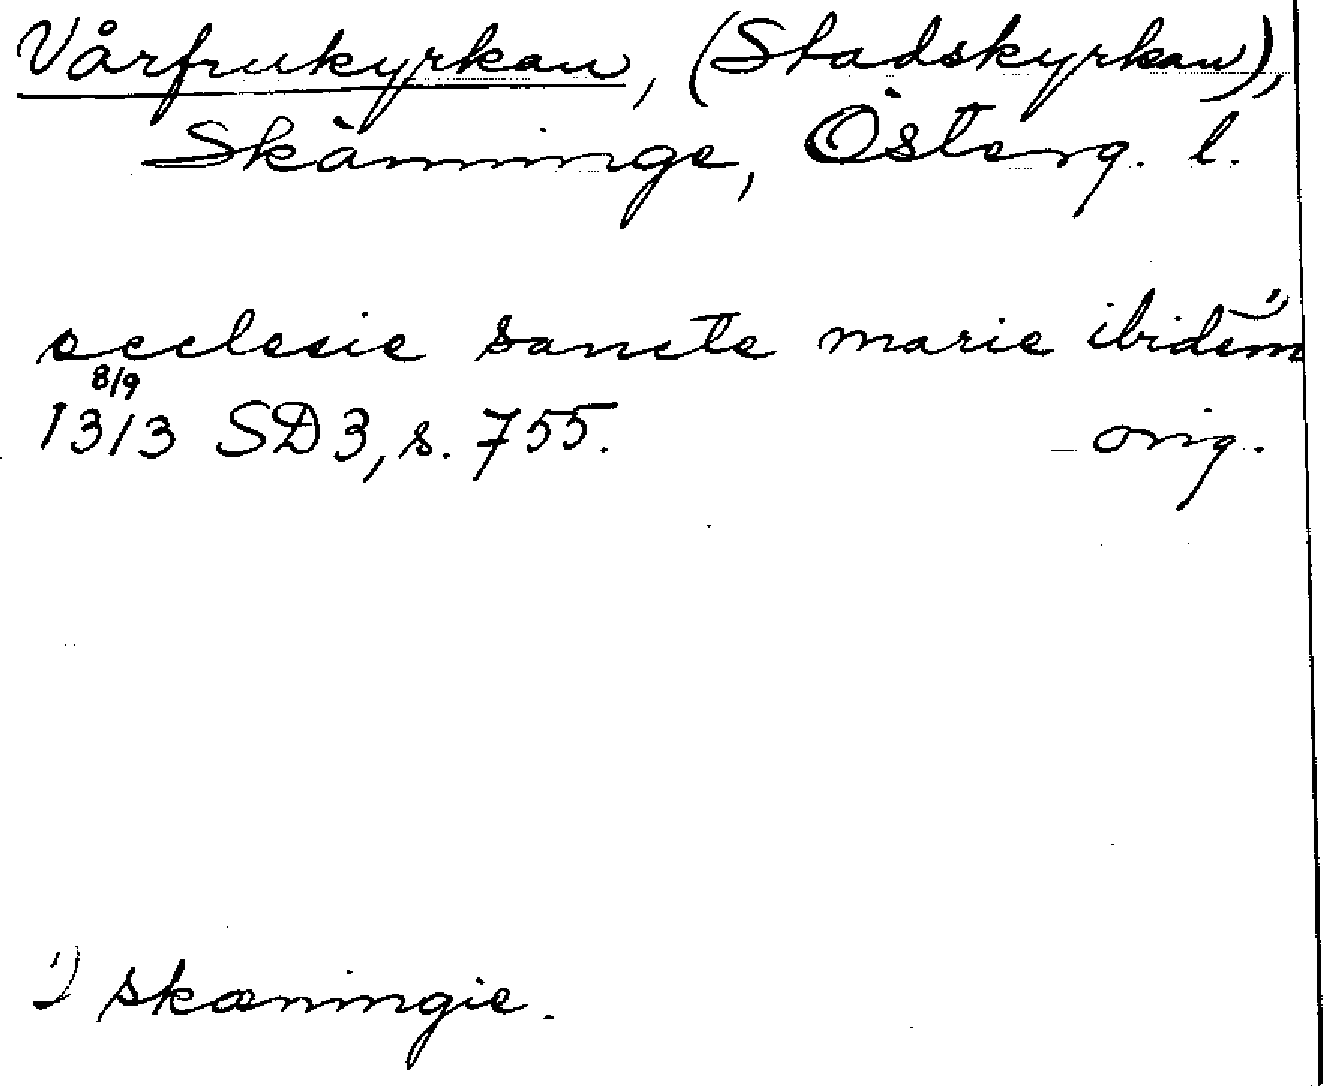 Vårfrukyrkan, (Stadskyrkan),
Skänninge, Österg. l.
ecclesie sancte marie ibidem 1)
8/9
1313 SD 3, s. 755. orig.
1) skæningie.